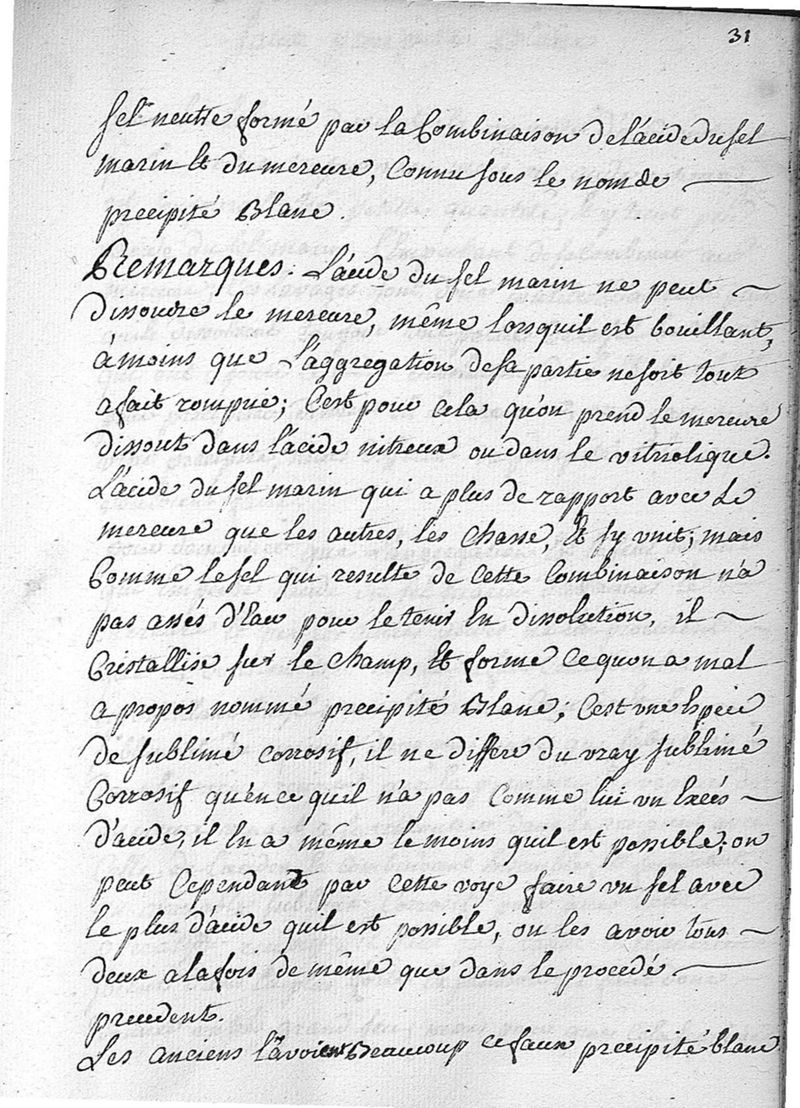 31
sel neutre formé par la Combinaison de l'acide du sel
marin et du mercure, Connu sous le nom de
precipité Blanc.
Remarques. L'acide du sel marin ne peut
dissoudre le mercure, même lorsquil est bouillant,
a moins que L'aggregation de sa partie ne soit tout
a fait rompuë; C'est pour cela qu'on prend le mercure
dissout dans l'acide nitreux ou dans le vitriolique.
L'acide du sel marin qui a plus de rapport avec Le
mercure que les autres, les chasse, et s'y unit; mais
Comme le sel qui resulte de cette Combinaison n'a
pas assés d'Eau pour le tenir En dissolution, il
Cristallise sur le champ, et forme ce quon a mal
a propos nommé precipité Blanc; C'est vne Espece
de sublimé corrosif, il ne differe du vray sublimé
Corrosif qu'en ce quil n'a pas Comme lui vn Excés
d'acide, il En a même le moins quil est possible; on
peut Cependant par cette voye faire vn sel avec
le plus d'acide quil est possible, ou les avoir tous
deux a la fois de même que dans le procedé
precedent.
Les anciens Beaucoup ce faux precipité blanc